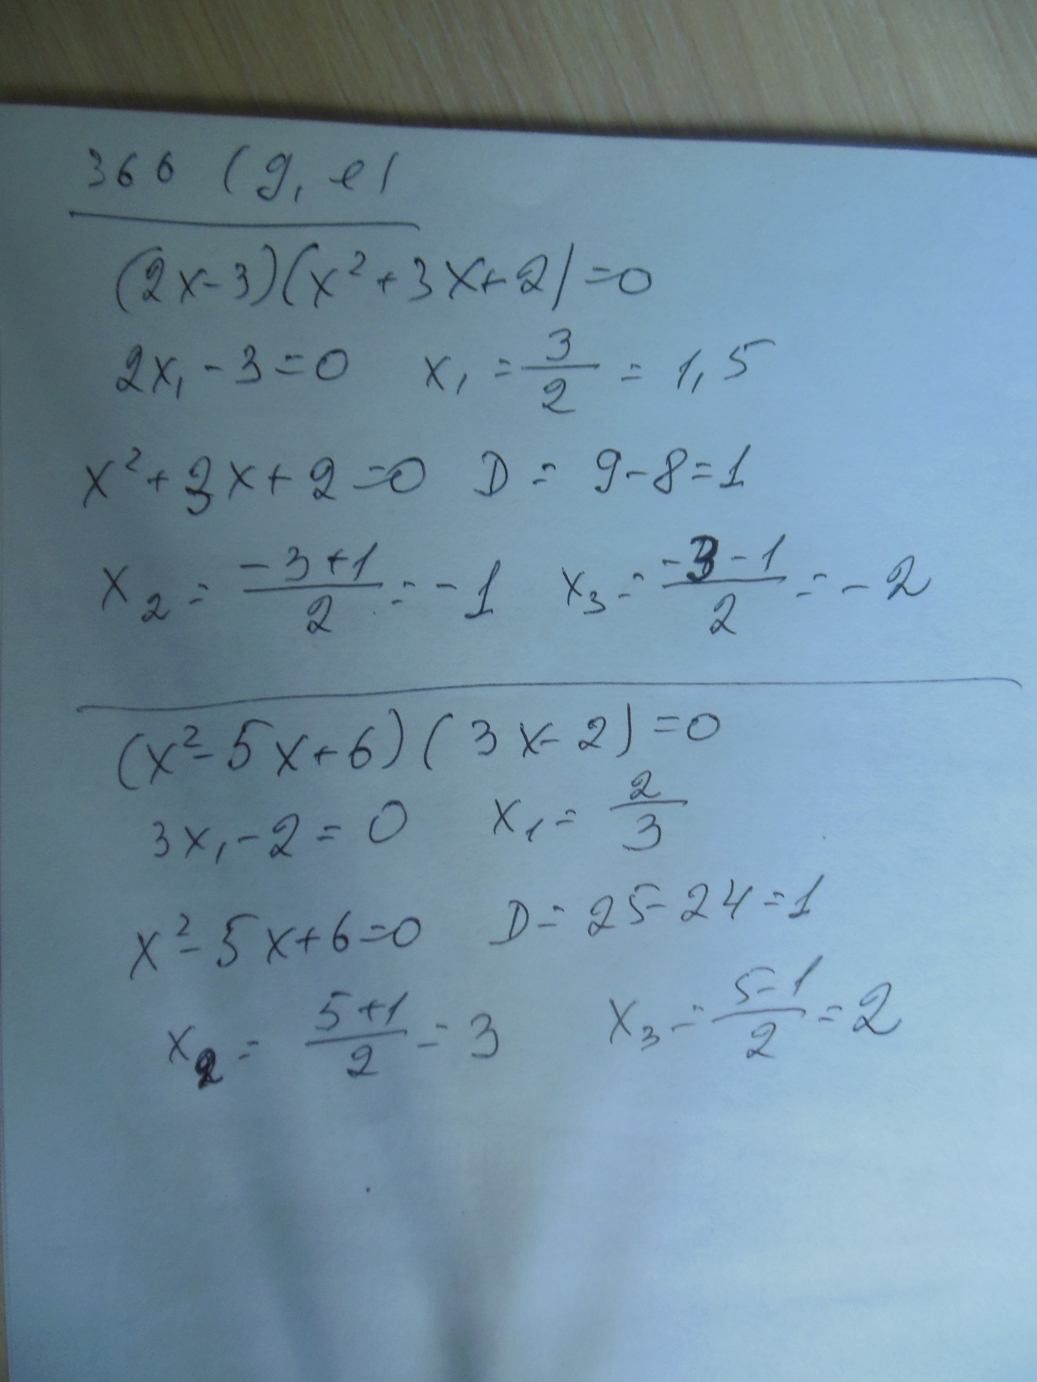 366 (д, е)
(2x-3)(x²+3x+2)=0
2x₁-3=0 x₁=3/2=1,5
x²+3x+2=0 D=9-8=1
x₂=(-3+1)/2=-1 x₃=(-3-1)/2=-2
(x²-5x+6)(3x-2)=0
3x₁-2=0 x₁=2/3
x²-5x+6=0 D=25-24=1
x₂=(5+1)/2=3 x₃=(5-1)/2=2